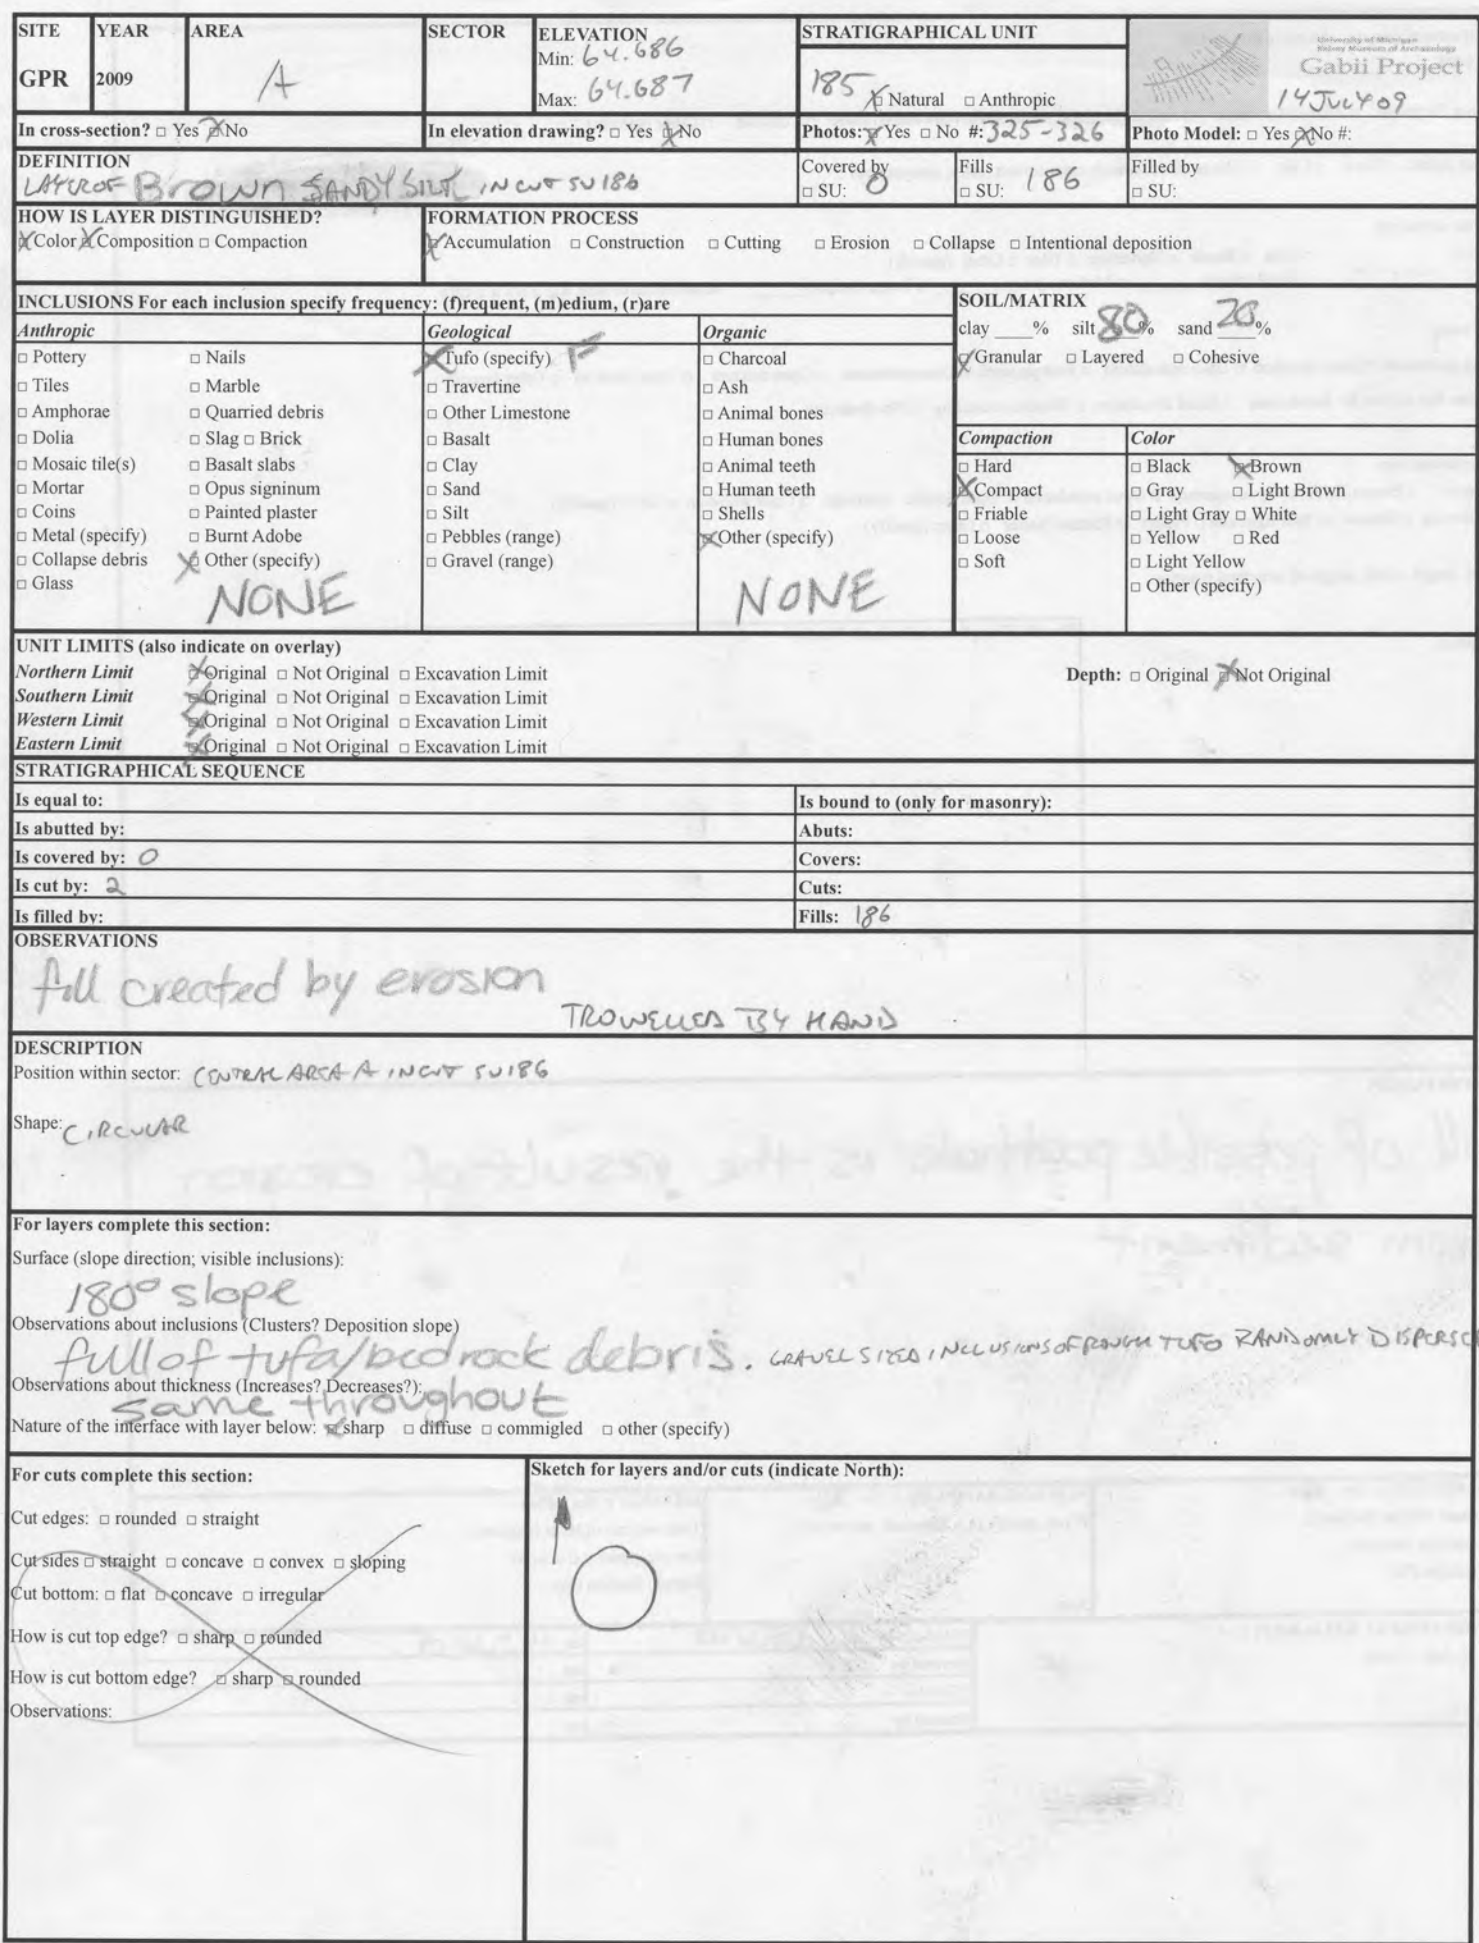 SITE YEAR AREA SECTOR ELEVATION STRATIGRAPHICAL UNIT
University of Michigan
Kelsey Museum of Archaeology
Gabii Project
GPR 2009 A Min: 64.686
Max: 64.687
185 ☒ Natural □ Anthropic
14 July 09
In cross-section? □ Yes ☒ No In elevation drawing? □ Yes ☒ No Photos: ☒ Yes □ No #: 325-326 Photo Model: □ Yes ☒ No #:
DEFINITION Covered by Fills Filled by
LAYER OF Brown SANDY SILT IN CUT SU 186 □ SU: 0 □ SU: 186 □ SU:
HOW IS LAYER DISTINGUISHED? FORMATION PROCESS
☒ Color ☒ Composition □ Compaction ☒ Accumulation □ Construction □ Cutting □ Erosion □ Collapse □ Intentional deposition
INCLUSIONS For each inclusion specify frequency: (f)requent, (m)edium, (r)are
Anthropic
□ Pottery □ Nails
□ Tiles □ Marble
□ Amphorae □ Quarried debris
□ Dolia □ Slag □ Brick
□ Mosaic tile(s) □ Basalt slabs
□ Mortar □ Opus signinum
□ Coins □ Painted plaster
□ Metal (specify) □ Burnt Adobe
□ Collapse debris ☒ Other (specify)
□ Glass NONE
Geological
☒ Tufo (specify) F
□ Travertine
□ Other Limestone
□ Basalt
□ Clay
□ Sand
□ Silt
□ Pebbles (range)
□ Gravel (range)
Organic
□ Charcoal
□ Ash
□ Animal bones
□ Human bones
□ Animal teeth
□ Human teeth
□ Shells
☒ Other (specify)
NONE
SOIL/MATRIX
clay ____% silt 80% sand 20%
☒ Granular □ Layered □ Cohesive
Compaction
□ Hard
☒ Compact
□ Friable
□ Loose
□ Soft
Color
□ Black ☒ Brown
□ Gray □ Light Brown
□ Light Gray □ White
□ Yellow □ Red
□ Light Yellow
□ Other (specify)
UNIT LIMITS (also indicate on overlay)
Northern Limit ☒ Original □ Not Original □ Excavation Limit Depth: □ Original ☒ Not Original
Southern Limit ☒ Original □ Not Original □ Excavation Limit
Western Limit ☒ Original □ Not Original □ Excavation Limit
Eastern Limit ☒ Original □ Not Original □ Excavation Limit
STRATIGRAPHICAL SEQUENCE
Is equal to: Is bound to (only for masonry):
Is abutted by: Abuts:
Is covered by: 0 Covers:
Is cut by: 2 Cuts:
Is filled by: Fills: 186
OBSERVATIONS
fill created by erosion
TROWELLED BY HAND
DESCRIPTION
Position within sector: CENTRAL AREA A IN CUT SU186
Shape: CIRCULAR
For layers complete this section:
Surface (slope direction; visible inclusions):
180° slope
Observations about inclusions (Clusters? Deposition slope)
full of tufa/bedrock debris. GRAVEL SIZED INCLUSIONS OF ROUGH TUFO RANDOMLY DISPERSE
Observations about thickness (Increases? Decreases?):
same throughout
Nature of the interface with layer below: ☒ sharp □ diffuse □ commigled □ other (specify)
For cuts complete this section:
Cut edges: □ rounded □ straight
Cut sides □ straight □ concave □ convex □ sloping
Cut bottom: □ flat □ concave □ irregular
How is cut top edge? □ sharp □ rounded
How is cut bottom edge? □ sharp □ rounded
Observations:
Sketch for layers and/or cuts (indicate North):